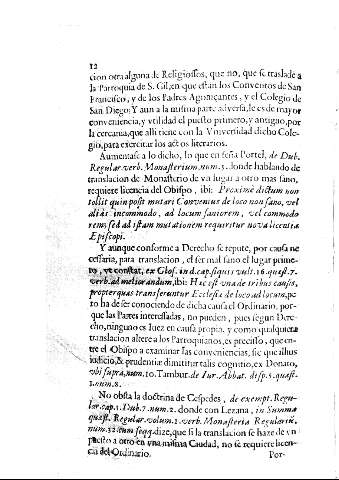 12
cion otra alguna de Religiossos, que no, que se traslade a
la Parroquia de S. Gil, en que estàn los Conventos de San
Francisco, y de los Padres Agonizantes, y el Colegio de
San Diego: Y aun a la misma parte adversa, le es de mayor
conveniencia, y vtilidad el puesto primero, y antiguo, por
la cercania, que alli tiene con la Vniversidad dicho Cole-
gio, para exercitar los actos literarios.
Aumentase a lo dicho, lo que enseña Portel, de Dub.
Regular. verb. Monasterium. num. 5. donde hablando de
translacion de Monasterio de vn lugar a otro mas sano,
requiere licencia del Obispo, ibi: Proximè dictum non
tollit quin possit mutari Conventus de loco non sano, vel
aliàs incommodo, ad locum saniorem, vel commodo
rem, sed ad istam mutationem requiritur nova licentia
Episcopi.
Y aunque conforme a Derecho se repute, por causa ne
cessaria, para translacion, el ser mal sano el lugar prime-
ro, vt constat, ex Glos. in d. cap. si quis vult. 16. quæst. 7.
verb. ad meliorandum, ibi: Hæc est vna de tribus causis,
propter quas transferuntur Ecclesiæ de loco ad locum, pe
ro ha de ser conociendo de dicha causa el Ordinario, por-
que las Partes interessadas, no pueden, pues segun Dere-
cho, ninguno es Iuez en causa propia, y como qualquiera
translacion altere a los Parroquianos, es preciso, que en-
tre el Obispo a examinar las conveniencias, sic que illius
iudicio, & prudentiæ dimittitur talis cognitio, ex Donato,
vbi supra, num. 10. Tambur. de Iur. Abbat. disp. 5. quæst.
1. num. 8.
No obsta la doctrina de Cespedes, de exempt. Regu-
lar. cap. 1. Dub. 7. num. 2. donde con Lezana, in Summa
quæst. Regular. volum. 2. verb. Monasteria Regularium,
num. 32. cum seqq. dize, que si la translacion se haze de vn
puesto a otro en vna misma Ciudad, no se requiere licen-
cia del Ordinario.
Por-